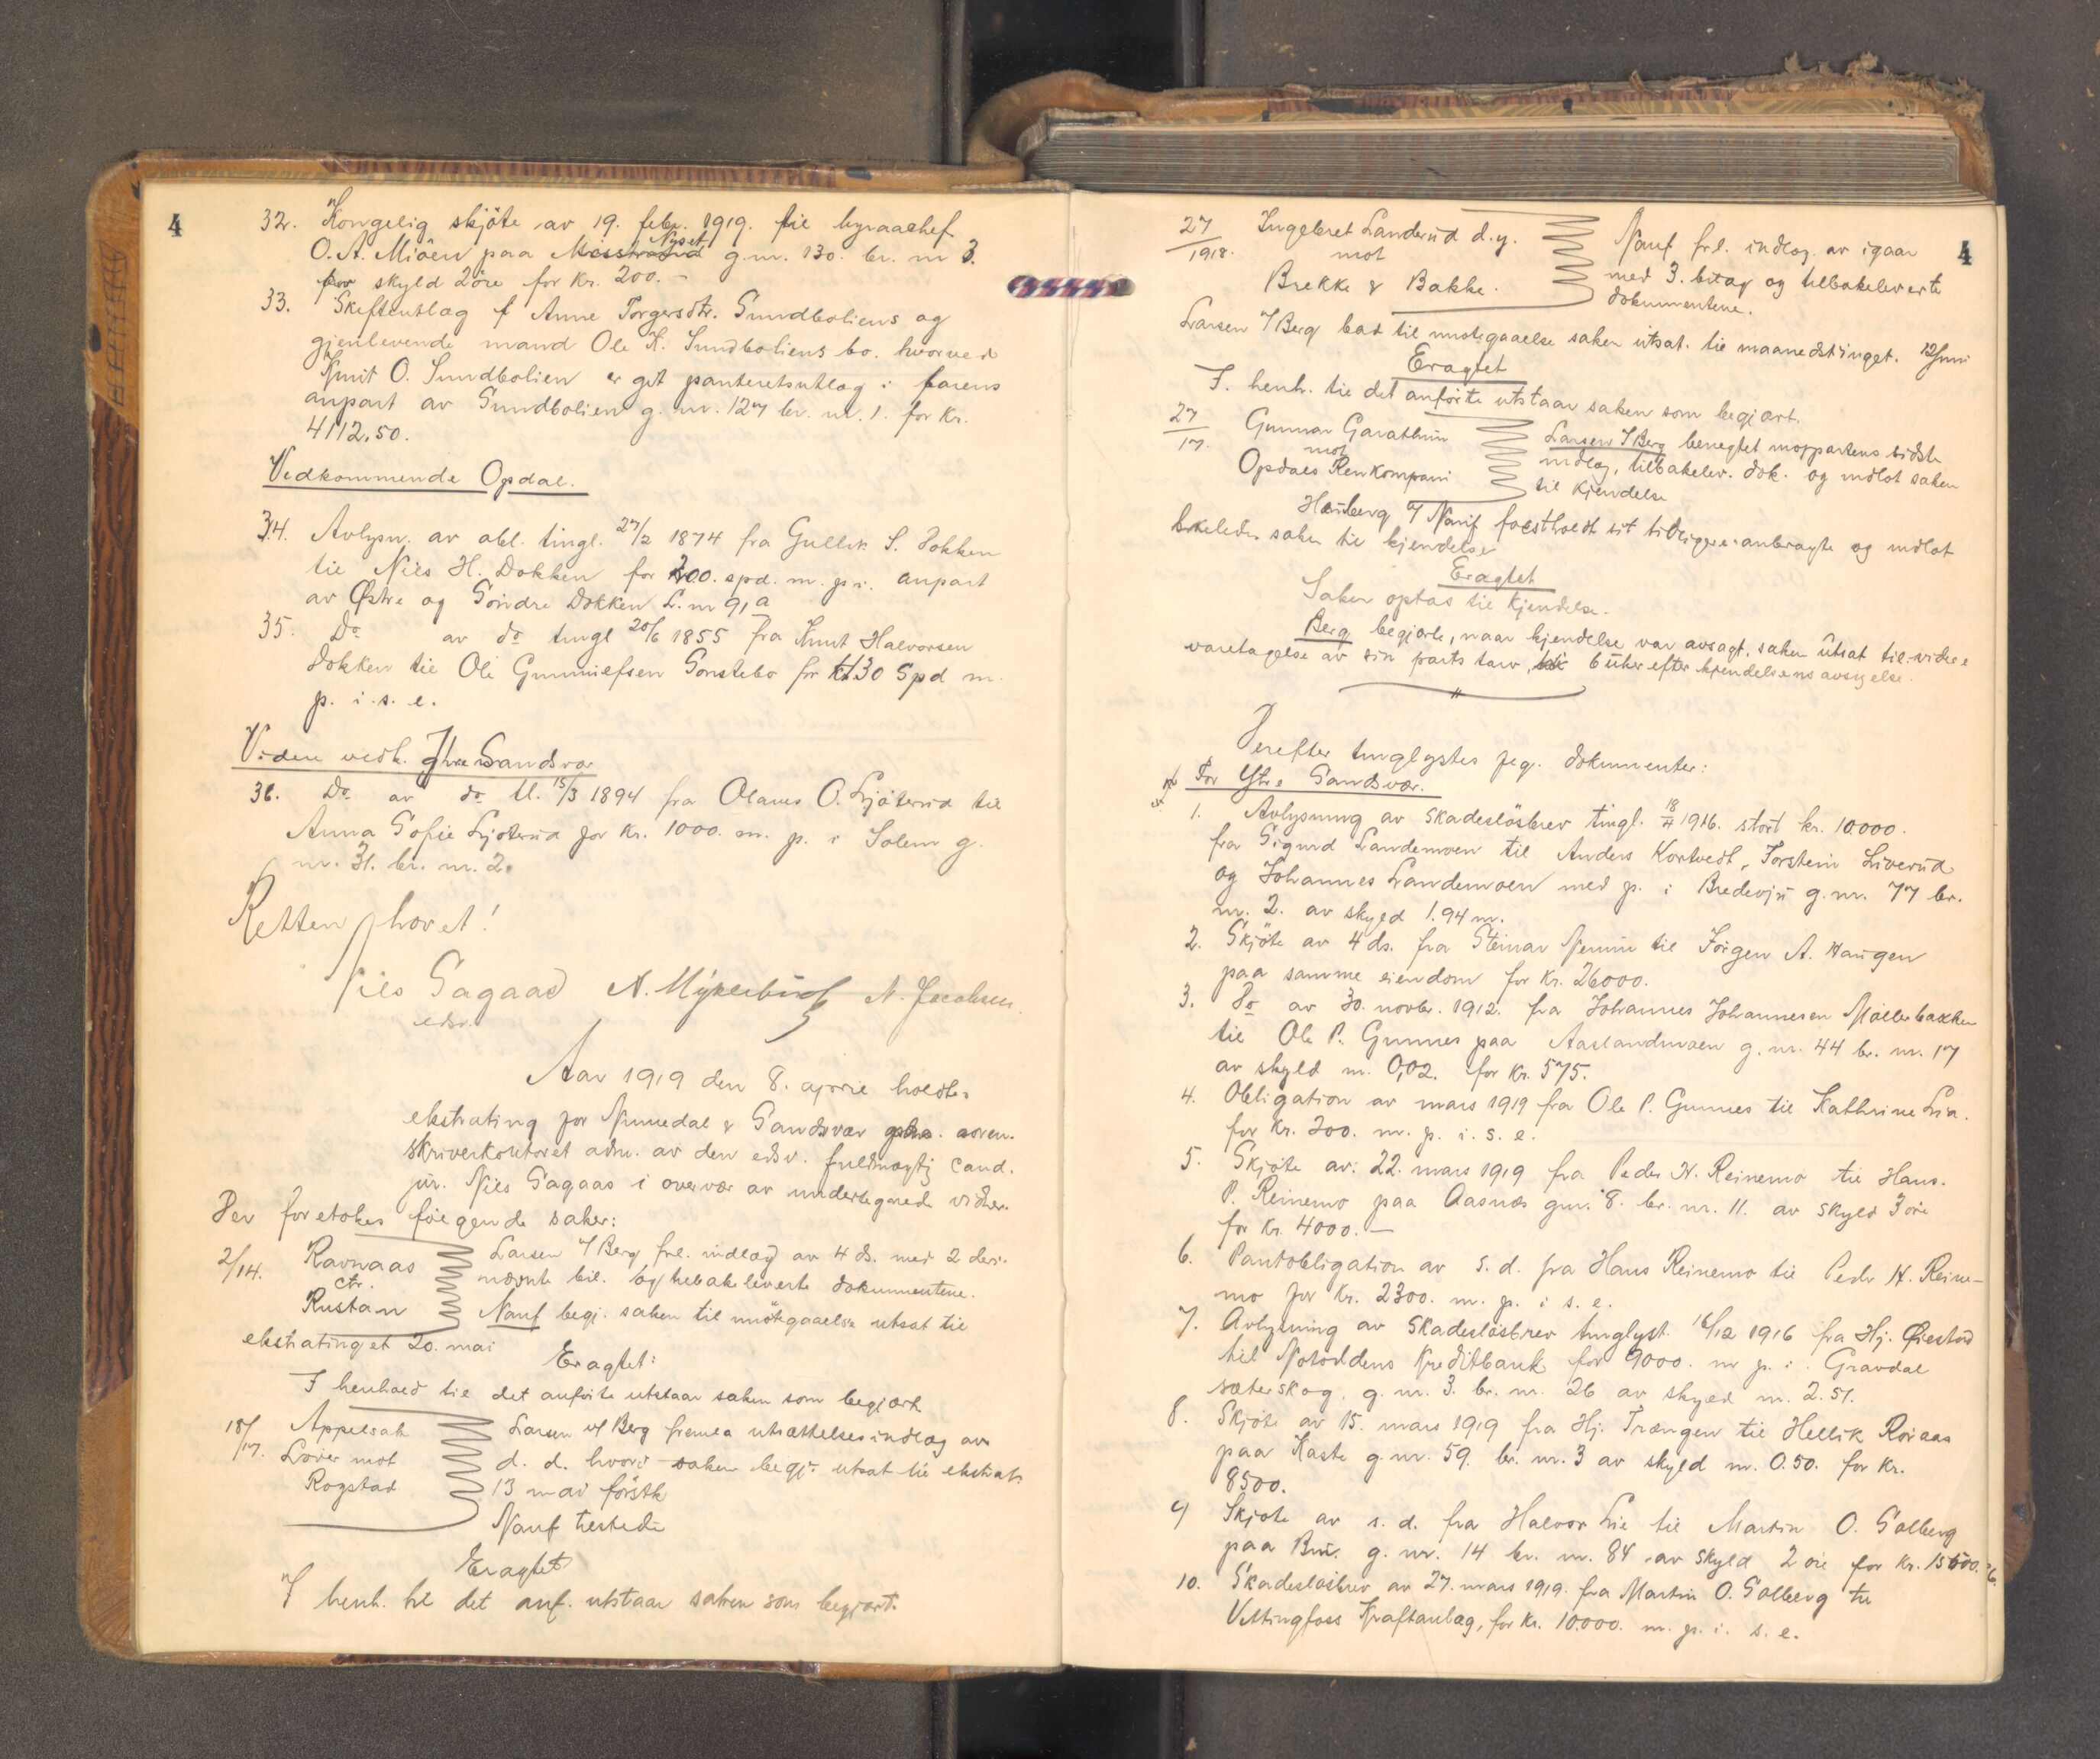 4
32. Kongelig skjöte av 19. febr. 1919. til byraachef
O. A. Miöen paa Nyset g.nr. 130. br. nr 3.
for skyld 2 öre for kr. 200.-
33. Skifteutlæg f Anne Torgersdtr. Sundboliens og
gjenlevende mand Ole K. Sundboliens bo. hvorved
Knut O. Sundbolien er git panteretsutlæg i farens
anpart av Sundbolien g. nr. 127 br. nr. 1. for kr.
4112.50.
Vedkommende Opdal.
34. Avlysn. av obl. tingl. 27/2 1874 fra Gullik S. Dokken
til Nils H. Dokken for 200. spd. m. p. i. anpart
av Østre og Söndre Dokken L. nr 91a
35. Do av do tingl 20/6 1855 fra Knut Halvorsen
Dokken til Ole Gunnulfsen Tonstebo for 430 Spd m.
p. i. s. e.
Videre vedk. Ytre Sandsvær
36. Do av do tl. 15/3 1894 fra Olaves O. Ljöterud til
Anna Sofie Ljöterud for kr. 1000. m. p. i Solem g.
nr. 31. br. nr. 2.
Retten hævet!
Nils Sagaas N. Jacobsen.
edsv.
Aar 1919 den 8. april holdtes
ekstrating for Numedal & Sandsvær paa soren-
skriverkontoret adm. av den edsv. fuldmægtig cand.
jur. Nils Sagaas i overvær av undertegnede vidner.
Der foretokes følgende saker:
2/14. Ravnaas
ctr.
Rustan
Larsen f/ Berg frl. indlæg av 4 ds. med 2 deri-
nævnte bil. og tilbakeleverte dokumentene.
Nauf begj. saken til imötegaaelse utsat til
ekstratinget 20. mai
Eragtet:
I henhold til det anförte utstaar saken som begjært
18/17. Appelsak
Løver mot
Rogstad
Larsen v/ Berg fremla utsættelsesindlæg av
d. d. hvori saken begj. utsat til ekstrat.
13 mai förstk
Nauf tilstede
Eragtet
I henh. til det anf. utstaar saken som begjært.
4
27/1918. Ingebret Landerud d.y.
mot
Brekke & Bakke.
Nauf frl. indlæg av igaar
med 3. bilag og tilbakeleverte
dokumentene.
Larsen f/ Berg bad til imötegaaelse saken utsat. til maanedstinget. 12 Juni
Eragtet
I. henh. til det anförte utstaar saken som begjært.
27/17. Gunnar Garathun
mot
Opdals Renkompani
Larsen f/ Berg benegtet motpartens sidste
indlæg, tilbakelev. dok. og indlot saken
til kjendelse
Hauberg f/ Nauf fastholdt sit tidligere anbragte og indlot
likeledes saken til kjendelse
Eragtet
Saken optas til kjendelse.
Berg begjærte, naar kjendelse var avsagt, saken utsat til videre
varetagelse av sin parts tarv, 6 uker efter kjendelsens avsigelse.
Derefter tinglystes flg. dokumenter:
For Ytre Sandsvær.
1. Avlysning av skadeslösbrev tingl. 18/4 1916. stort kr. 10.000.
fra Sigurd Landemoen til Anders Kortvedt, Torstein Liverud
og Johannes Landemoen med p. i Bredevju g.nr. 77 br.
nr. 2. av skyld 1.94 m.
2. Skjöte av 4 ds. fra Steinar Nemin til Jörgen A. Haugen
paa samme eiendom for kr. 26000.
3. Do av 30. novbr. 1912. fra Johannes Johannesen Möllerbakken
til Ole P. Gunnes paa Aaslandmoen g. nr. 44 br. nr. 17
av skyld m. 0,02. for kr. 575.
4. Obligation av mars 1919 fra Ole P. Gunnes til Kathrine Lia.
for kr. 300. m. p. i. s. e.
5. Skjöte av. 22. mars 1919 fra Peder N. Reinemo til Hans.
P. Reinemo paa Aasnæs gnr. 8. br. nr. 11. av skyld 3 öre
for kr. 4000.-
6. Pantobligation av s. d. fra Hans Reinemo til Peder N. Reine-
mo for kr. 2300. m. p. i s. e.
7. Avlysning av skadeslösbrev tinglyst. 16/12 1916 fra Hj. Øiestad
til Notoddens Kreditbank for 9000. m p. i. Gravdal
sæterskog. g. nr. 3. br. nr. 26 av skyld m. 2.51.
8. Skjöte av 15. mars 1919 fra Hj. Trængen til Hellik Roiaas
paa Kaste g.nr. 59. br. nr. 3 av skyld m. 0.50. for kr.
8500.
9 Skjöte av s. d. fra Halvor Lie til Martin O. Solberg
paa Bru. g. nr. 14 br. nr. 84 av skyld 2 öre for kr. 15500.
10. Skadeslösbrev av 27. mars 1919. fra Martin O. Solberg til
Vittingfoss Kraftanlæg, for kr. 10.000. m. p. i. s. e.